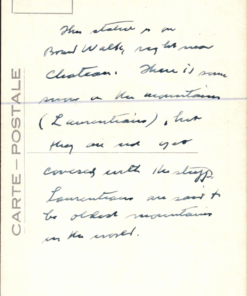 This statue is on
Board Walk, right near
Chateau. There is some
snow on the mountains
(Laurentians), but
they are not yet
covered with the stuff.
Laurentians are said to
be oldest mountains
in the world.
CARTE-POSTALE